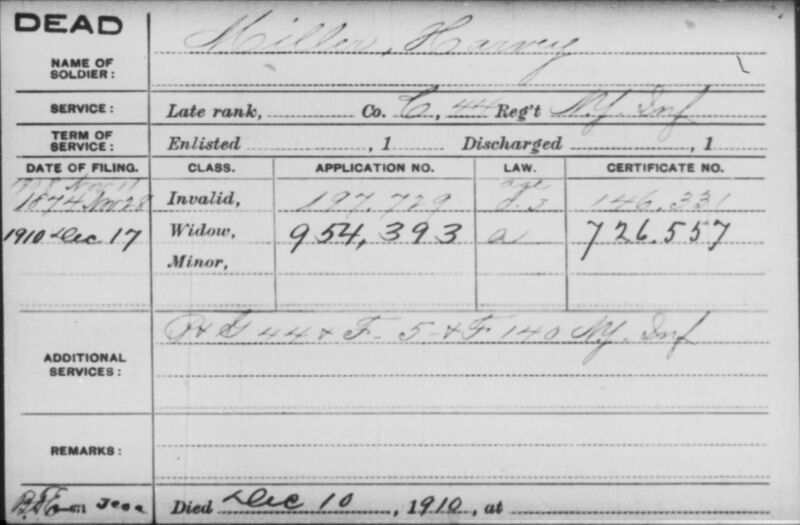 DEAD
NAME OF SOLDIER: Miller, Harvey
SERVICE: Late rank, Co. C, 44 Reg't N.Y. Inf
TERM OF SERVICE: Enlisted , 1 Discharged , 1
DATE OF FILING. CLASS. APPLICATION NO. LAW. CERTIFICATE NO.
1908 Nov 11 age
1874 Nov 28 Invalid, 197.729 146.331
1910 Dec 17 Widow, 954,393 a 726.557
Minor,
ADDITIONAL SERVICES: & G 44 & F- 5 & F 140 N.Y. Inf
REMARKS:
Died Dec 10, 1910, at